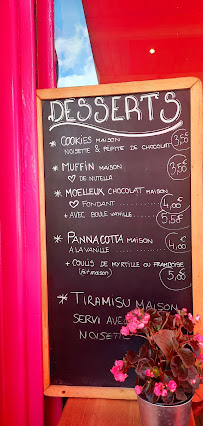 DESSERTS
* COOKIES MAISON 3,50€
NOISETTE & PÉPITE DE CHOCOLAT
* MUFFIN MAISON 3,50€
♡ DE NUTELLA
* MOELLEUX CHOCOLAT MAISON
♡ FONDANT 4,00€
+ AVEC BOULE VANILLE 5,50€
* PANNACOTTA MAISON 4,00€
A LA VANILLE
+ COULIS DE MYRTILLE OU FRAMBOISE
(fait maison) 5,00€
* TIRAMISU MAISON
SERVI AVEC
NOISETTE